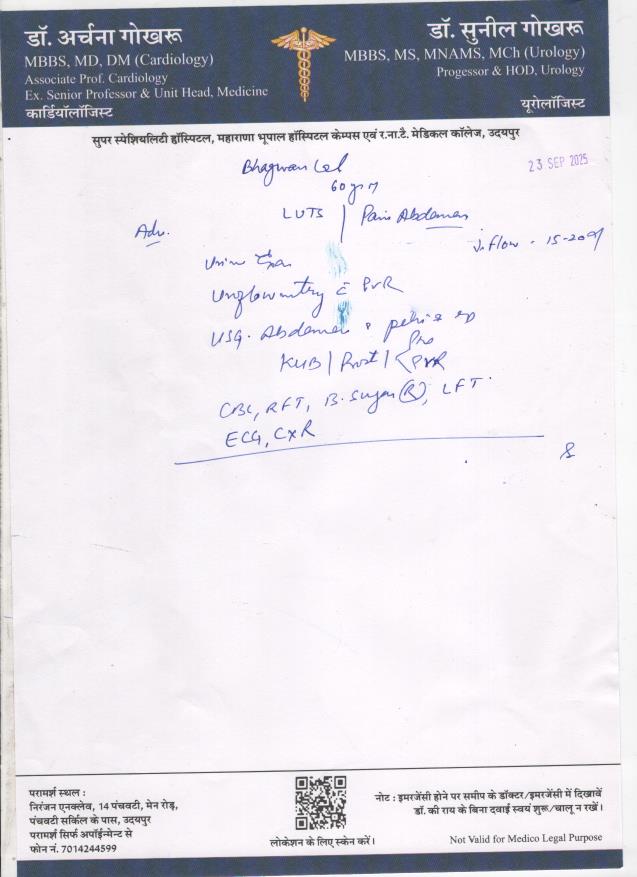 डॉ. अर्चना गोखरू
MBBS, MD, DM (Cardiology)
Associate Prof. Cardiology
Ex. Senior Professor & Unit Head, Medicine
कार्डियॉलॉजिस्ट
डॉ. सुनील गोखरू
MBBS, MS, MNAMS, MCh (Urology)
Progessor & HOD, Urology
यूरोलॉजिस्ट
सुपर स्पेशियलिटी हॉस्पिटल, महाराणा भूपाल हॉस्पिटल केम्पस एवं र.ना.टै. मेडिकल कॉलेज, उदयपुर
23 SEP 2025
Bhagwan Lal
60 yr M
LUTS | Pain Abdomen
Adv.
flow - 15-20
Urine
Uroflowmetry c̄ PVR
USG. Abdomen
KUB | Prost | Pre PVR
CBC, RFT, B. Sugar (R), LFT
ECG, CXR
परामर्श स्थल :
निरंजन एनक्लेव, 14 पंचवटी, मेन रोड़,
पंचवटी सर्किल के पास, उदयपुर
परामर्श सिर्फ अपॉईन्मेन्ट से
फोन नं. 7014244599
लोकेशन के लिए स्केन करें।
नोट : इमरजेंसी होने पर समीप के डॉक्टर/इमरजेंसी में दिखावें
डॉ. की राय के बिना दवाई स्वयं शुरू/चालू न रखें।
Not Valid for Medico Legal Purpose